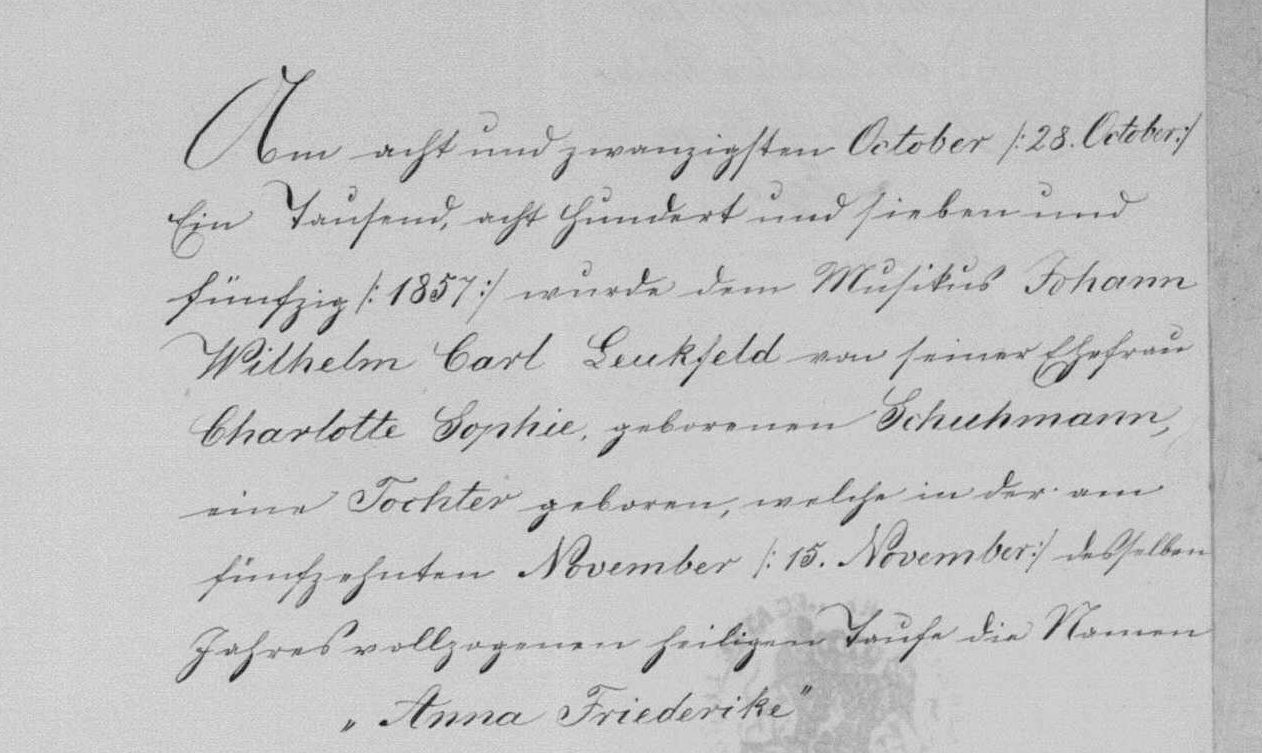 Am acht und zwanzigsten October /: 28. October :/
Ein Tausend, acht Hundert und sieben und
fünfzig /: 1857 :/ wurde dem Musikus Johann
Wilhelm Carl Leukfeld von seiner Ehefrau
Charlotte Sophie, geborenen Schuhmann,
eine Tochter geboren, welche in der am
fünfzehnten November /: 15. November :/ desselben
Jahres vollzogenen heiligen Taufe die Namen
„Anna Friederike"